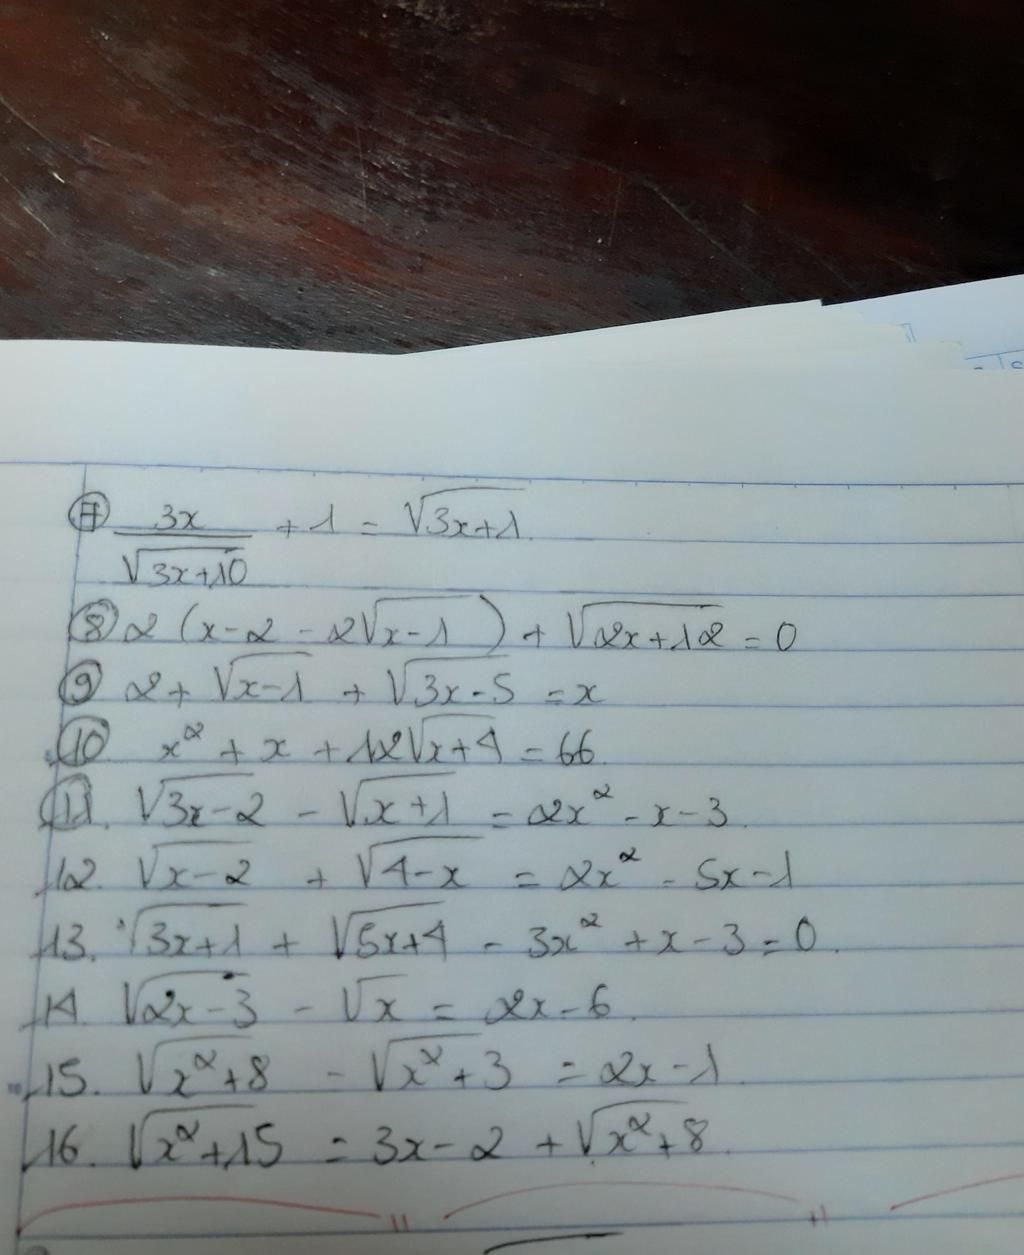 ⑦ 3x/√(3x+10) + 1 = √(3x+1)
⑧ 2(x-2-2√(x-1)) + √(2x+12) = 0
⑨ 2 + √(x-1) + √(3x-5) = x
⑩ x² + x + 12√(x+4) = 66
⑪. √(3x-2) - √(x+1) = 2x² - x - 3.
12. √(x-2) + √(4-x) = 2x² - 5x - 1
13. √(3x+1) + √(5x+4) - 3x² + x - 3 = 0.
14. √(2x-3) - √x = 2x - 6.
15. √(x²+8) - √(x²+3) = 2x - 1.
16. √(x²+15) = 3x - 2 + √(x²+8).